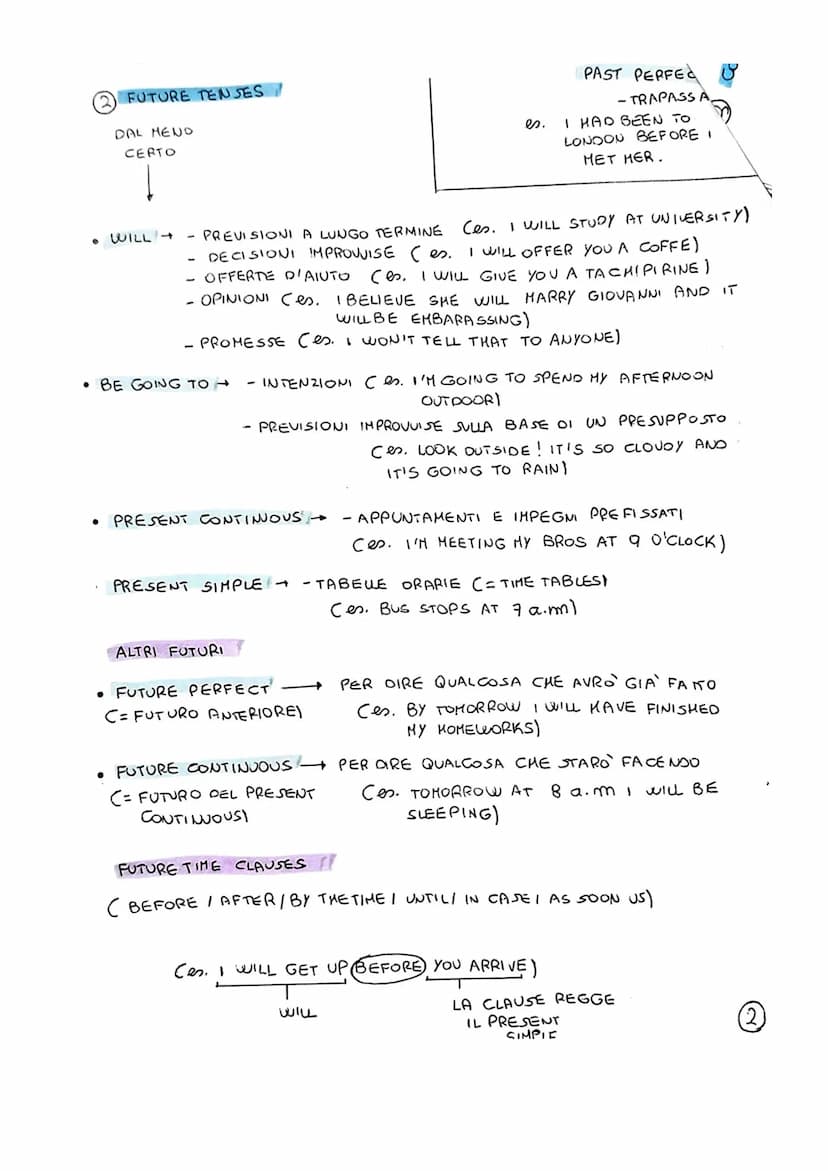 PAST PERFEC
- TRAPASSA
es. I HAD BEEN TO
LONDON BEFORE I
MET HER.
② FUTURE TENSES
DAL MENO
CERTO
• WILL → - PREVISIONI A LUNGO TERMINE (es. I WILL STUDY AT UNIVERSITY)
- DECISIONI IMPROVVISE (es. I WILL OFFER YOU A COFFE)
- OFFERTE D'AIUTO (es. I WILL GIVE YOU A TACHIPIRINE)
- OPINIONI (es. I BELIEVE SHE WILL MARRY GIOVANNI AND IT
WILL BE EMBARASSING)
- PROMESSE (es. I WON'T TELL THAT TO ANYONE)
• BE GOING TO → - INTENZIONI (es. I'M GOING TO SPEND MY AFTERNOON
OUTDOOR)
- PREVISIONI IMPROVVISE SULLA BASE DI UN PRESUPPOSTO
(es. LOOK OUTSIDE! IT'S SO CLOUDY AND
IT'S GOING TO RAIN)
• PRESENT CONTINUOUS → - APPUNTAMENTI E IMPEGNI PREFISSATI
(es. I'M MEETING MY BROS AT 9 O'CLOCK)
· PRESENT SIMPLE → - TABELLE ORARIE (= TIME TABLES)
(es. BUS STOPS AT 7 a.m)
ALTRI FUTURI
• FUTURE PERFECT → PER DIRE QUALCOSA CHE AVRÒ GIÀ FATTO
(= FUTURO ANTERIORE) (es. BY TOMORROW I WILL HAVE FINISHED
MY HOMEWORKS)
• FUTURE CONTINUOUS → PER DIRE QUALCOSA CHE STARÒ FACENDO
(= FUTURO DEL PRESENT (es. TOMORROW AT 8 a.m I WILL BE
CONTINUOUS) SLEEPING)
FUTURE TIME CLAUSES
(BEFORE / AFTER / BY THE TIME / UNTIL / IN CASE / AS SOON US)
(es. I WILL GET UP BEFORE YOU ARRIVE)
WILL
LA CLAUSE REGGE
IL PRESENT
SIMPLE
②